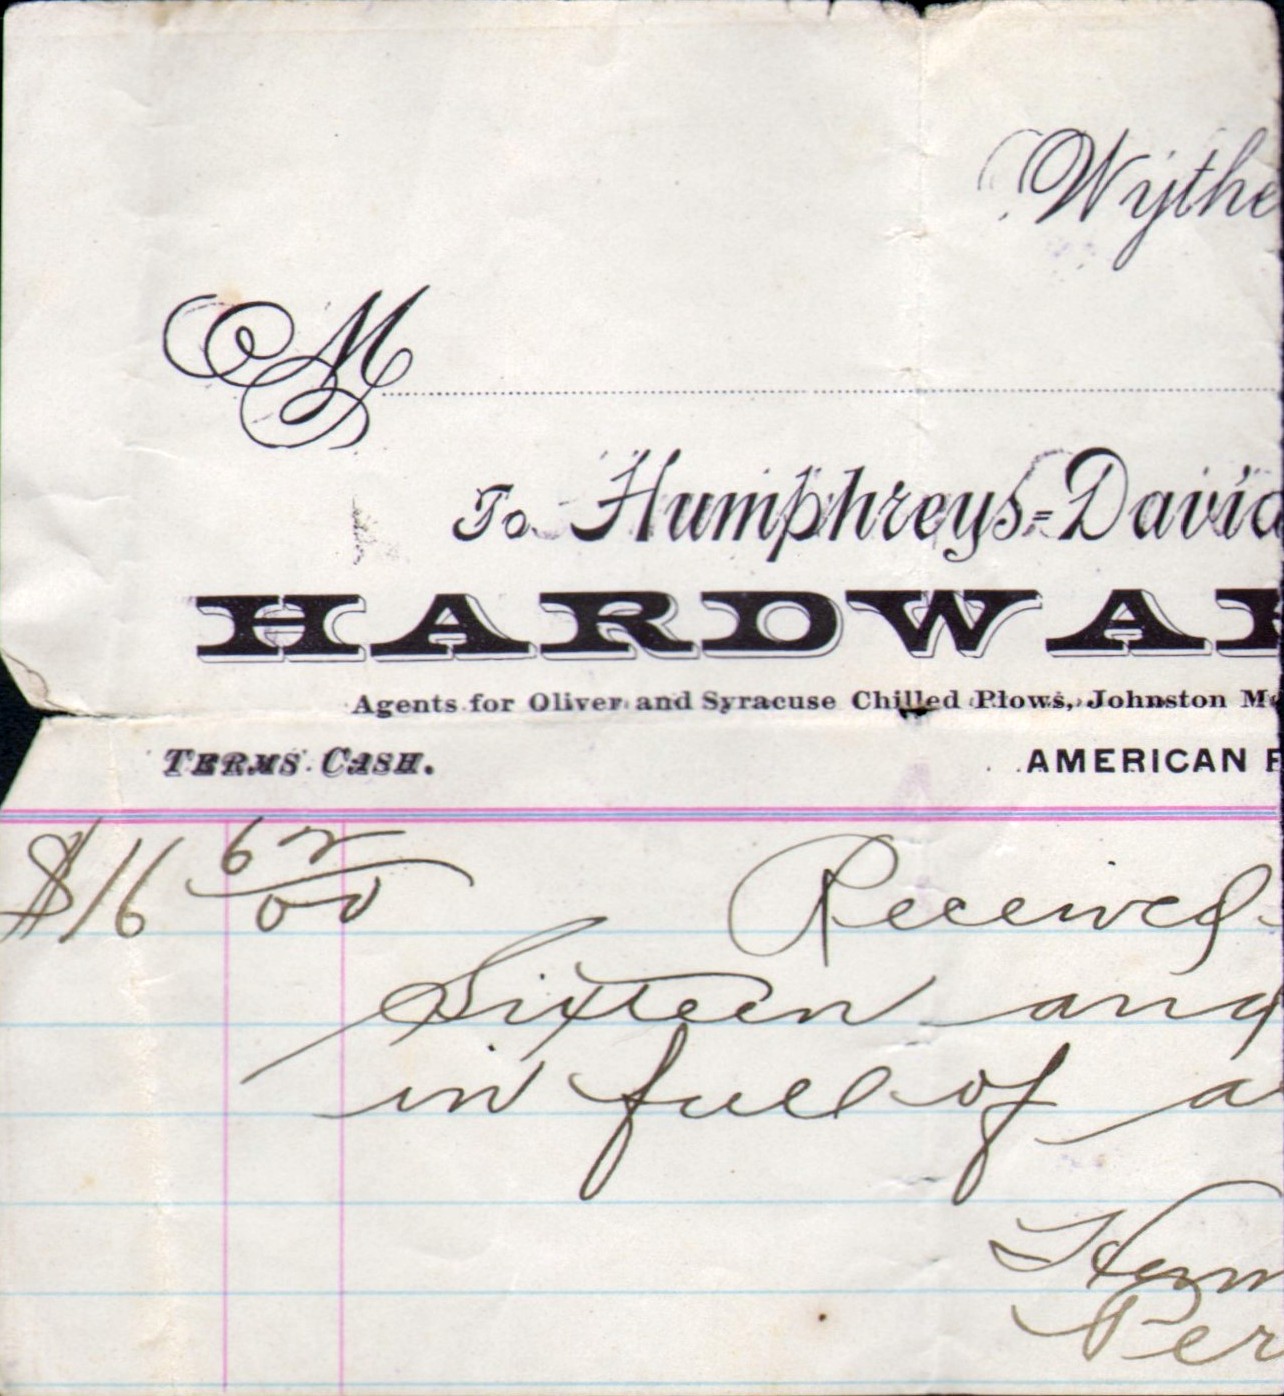 Wythe
M
To Humphreys=David
HARDWAR
Agents for Oliver and Syracuse Chilled Plows, Johnston M
TERMS CASH. AMERICAN F
$16 62/00 Received
Sixteen and
in full of a
Hum
Per